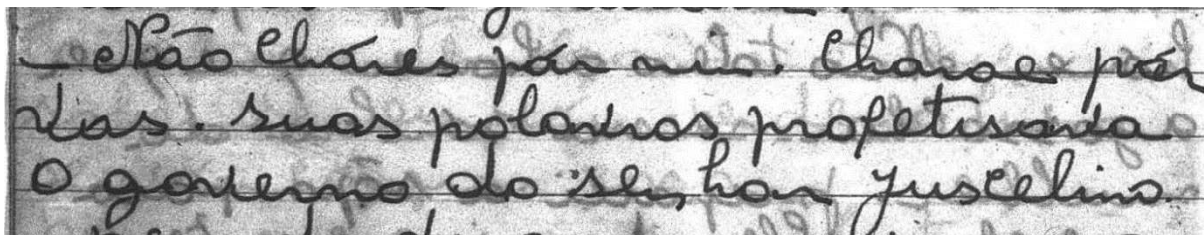 - Não Chóres pór mim. Chorae pór
Vós. suas palavras profetisava
O governo do senhor Juscelino.